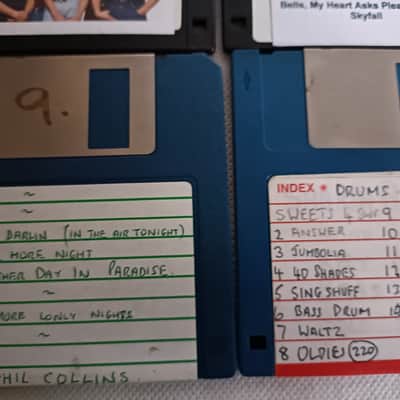 Bells, My Heart Asks
Skyfall
9.
~
~
DARLIN (IN THE AIR TONIGHT)
MORE NIGHT
HER DAY IN PARADISE.
~
MORE LONLY NIGHTS
~
HIL COLLINS
INDEX DRUMS
SWEETS 9
2 ANSWER 10
3 JUMBOLIA 11
4 40 SHADES 12
5 SING SHUFF 13
6 BASS DRUM
7 WALTZ
8 OLDIES (220)